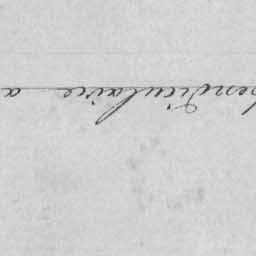 pendiculaire a